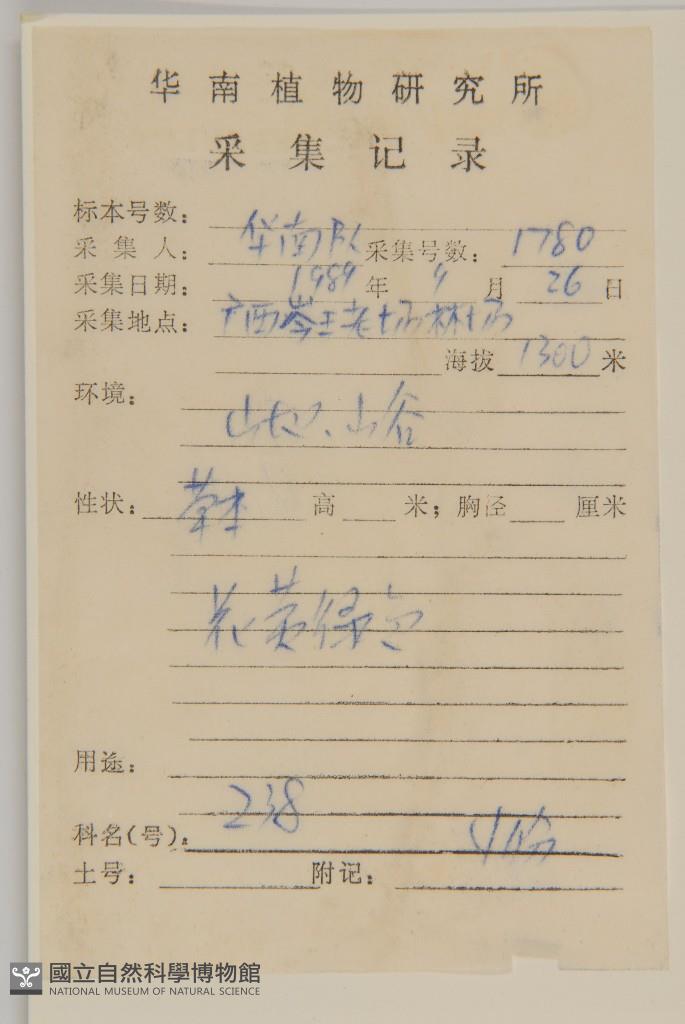 华南植物研究所
采集记录
标本号数：
采集人： 华南队 采集号数： 1780
采集日期： 1989 年 9 月 26 日
采集地点： 广西岑王老场林场
海拔 1300 米
环境：
山地、山谷
性状： 草本 高 米；胸径 厘米
花黄绿色
用途：
238
科名(号)：
土号： 附记：
國立自然科學博物館
NATIONAL MUSEUM OF NATURAL SCIENCE